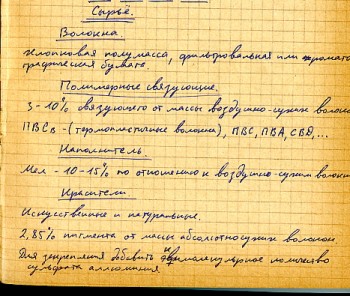 Сырьё.
Волокна.
Хлопковая полумасса, фильтровальная или хромато-
графическая бумага.
Полимерные связующие.
3-10% связующего от массы воздушно-сухих волокон
ПВСв -(термопластичные волокна), ПВС, ПВА, СВД,...
Наполнитель.
Мел - 10-15% по отношению к воздушно-сухим волокн
Красители
Искуственные и натуральные.
2,85% пигмента от массы абсолютносухих волокон
Для закрепления добавить эквимолекулярное количество
сульфата аллюминия